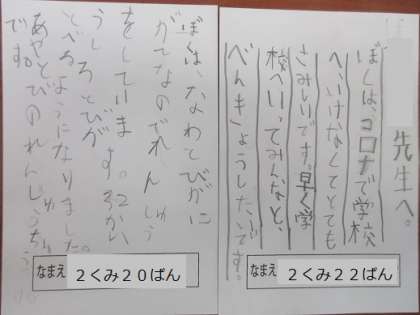 先生へ。
ぼくは、コロナで学校
へ、いけなくてとても
さみしいです。早く学
校へいってみんなと、
べんきょうしたいです。
なまえ 2くみ22ばん
ぼくは、なわとびがに
がてなのでれんしゅう
をしています。32かい
うしろとびが
とべるようになりました。
あやとびのれんしゅうちゅう
です。
なまえ 2くみ20ばん